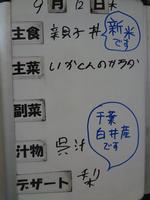 9月12日水
主食 親子丼
新米です
主菜 いかてんのサラダ
副菜
汁物 呉汁
千葉
白井産
です
デザート 梨